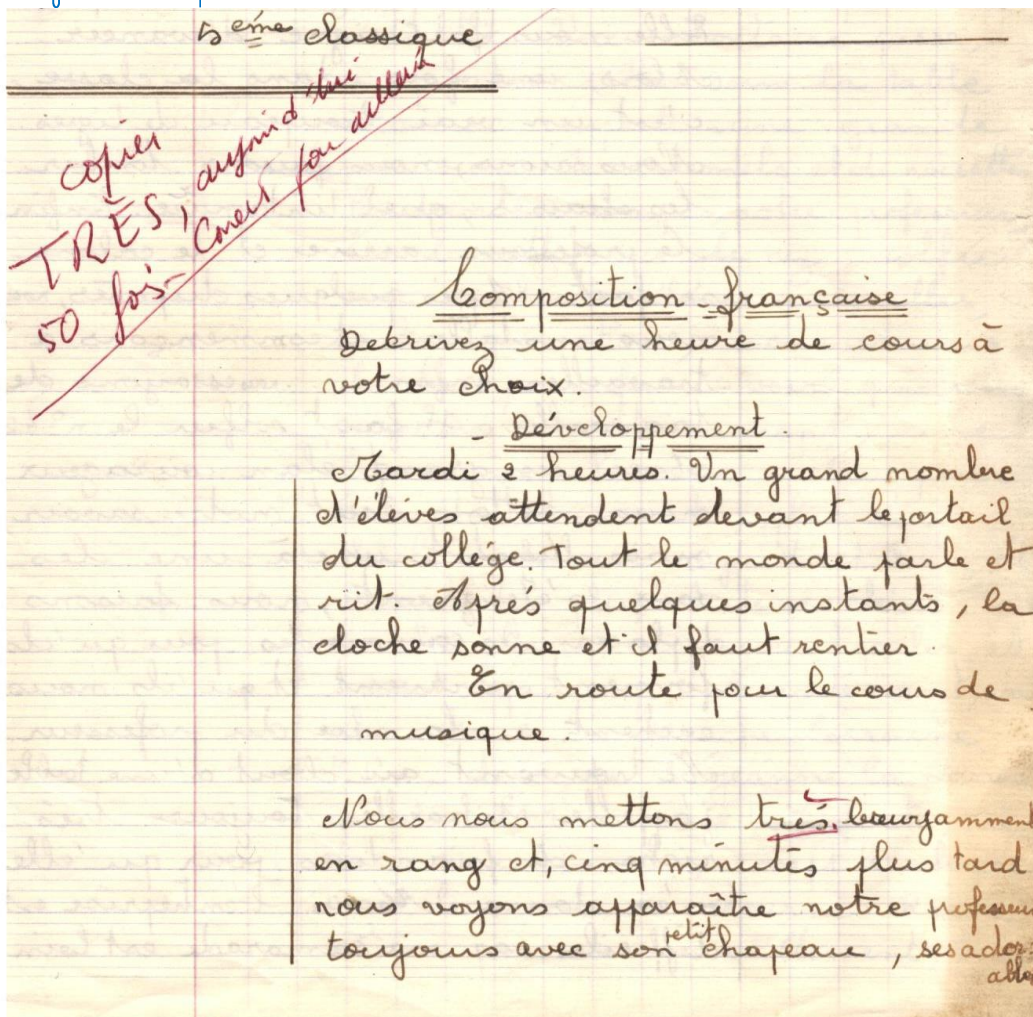 5ème classique
copier
TRÈS, aujourd'hui
50 fois- Cours par ailleurs
Composition française
Décrivez une heure de cours à
votre choix.
- Développement.
Mardi 2 heures. Un grand nombre
d'éléves attendent devant le portail
du collége. Tout le monde parle et
rit. Aprés quelques instants, la
cloche sonne et il faut rentrer.
En route pour le cours de
musique.
Nous nous mettons trés bruyamment
en rang et, cinq minutes plus tard
nous voyons apparaître notre professeur
toujours avec son petit chapeau, ses ador-
ables